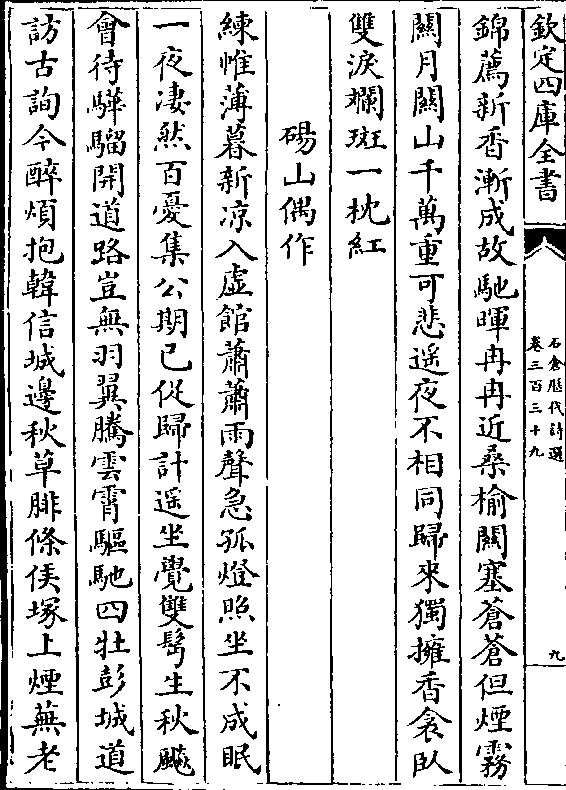 欽定四庫全書
石倉歷代詩選
卷三百三十九
九
錦薦新香漸成故馳暉冉冉近桑榆關塞蒼蒼但煙霧
關月關山千萬重可悲遥夜不相同歸來獨擁香衾臥
雙淚斕斑一枕紅
碭山偶作
練帷薄暮新凉入虛館蕭蕭雨聲急孤燈照坐不成眠
一夜凄然百憂集公期已促歸計遥坐覺雙髩生秋飈
會待驊騮開道路豈無羽翼騰雲霄驅馳四牡彭城道
訪古詢今醉煩抱韓信城邊秋草腓條侯塚上煙蕪老